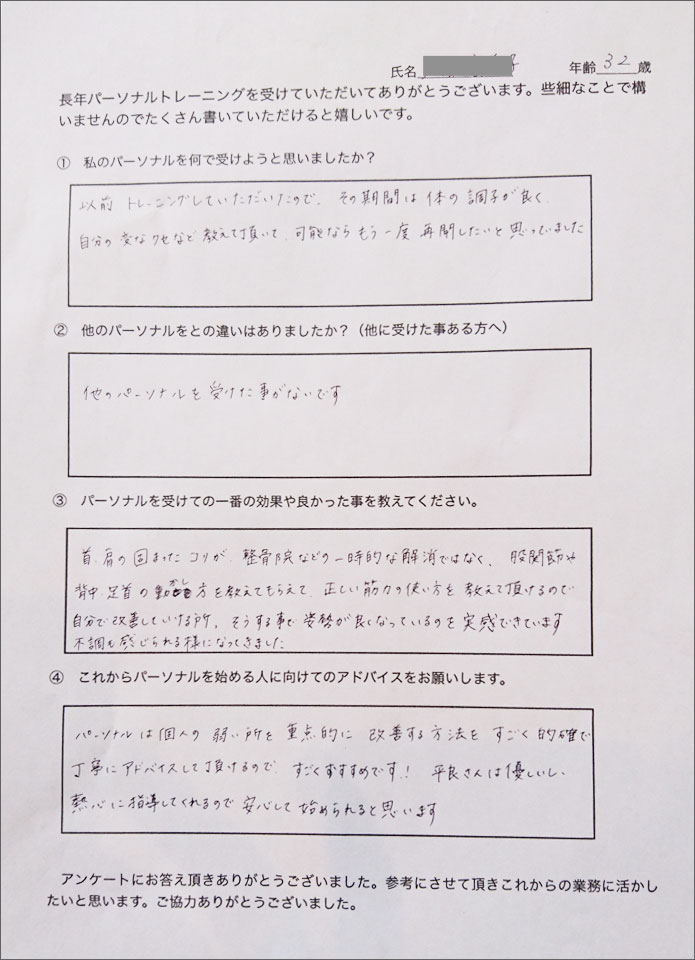 氏名 年齢 32 歳
長年パーソナルトレーニングを受けていただいてありがとうございます。些細なことで構
いませんのでたくさん書いていただけると嬉しいです。
① 私のパーソナルを何で受けようと思いましたか？
以前 トレーニングしていただいたので、その期間は体の調子が良く、
自分の変なクセなど教えて頂いて、可能ならもう一度再開したいと思っていました
② 他のパーソナルをとの違いはありましたか？（他に受けた事ある方へ）
他のパーソナルを受けた事がないです
③ パーソナルを受けての一番の効果や良かった事を教えてください。
首、肩の固まったコリが、整骨院などの一時的な解消ではなく、股関節や
背中、足首の動かし方を教えてもらえて、正しい筋力の使い方を教えて頂けるので
自分で改善していける所、そうする事で姿勢が良くなっているのを実感できています
不調も感じられる様になってきました
④ これからパーソナルを始める人に向けてのアドバイスをお願いします。
パーソナルは個人の弱い所を重点的に改善する方法をすごく的確で
丁寧にアドバイスして頂けるので、すごくすすめです！平良さんは優しいし、
熱心に指導してくれるので安心して始められると思います
アンケートにお答え頂きありがとうございました。参考にさせて頂きこれからの業務に活かし
たいと思います。ご協力ありがとうございました。